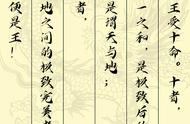 王受十命。十者，
一之和，是极致后的
是谓天与地；
者，
地之间的极致完美者
便是王！